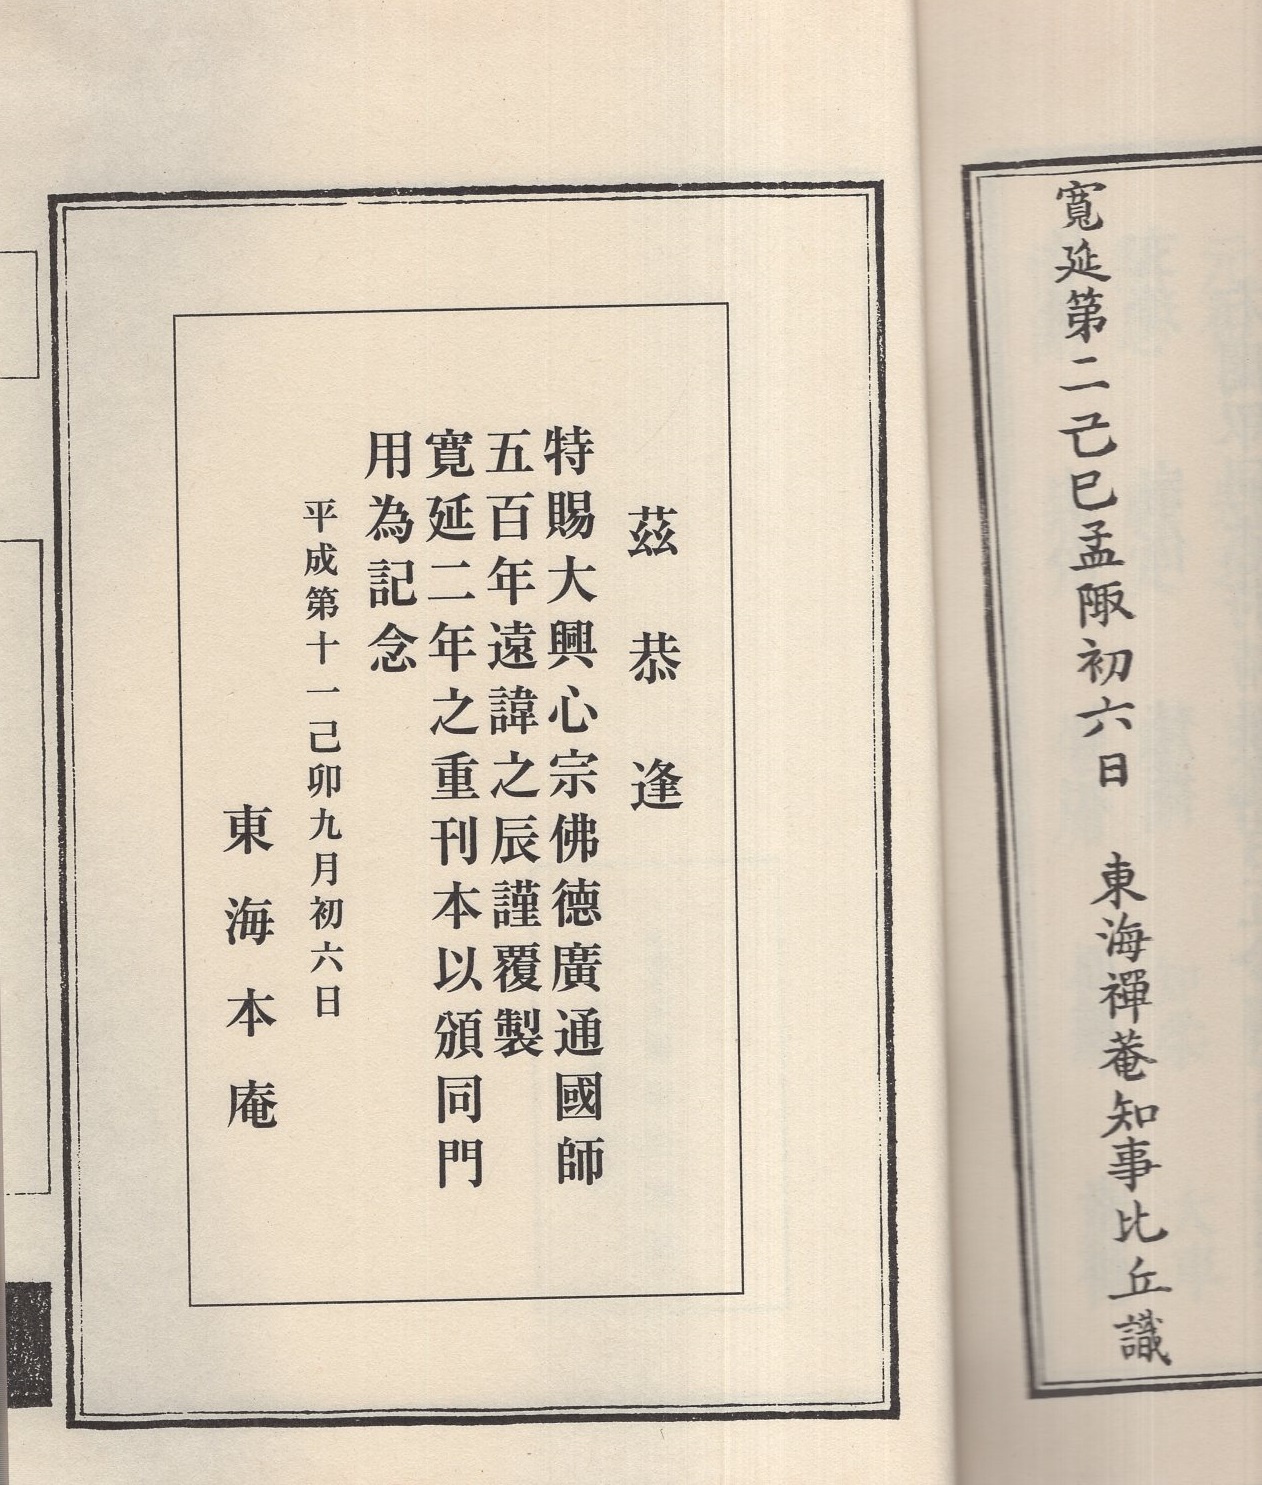 寛延第二己巳孟陬初六日　東海禪菴知事比丘識
茲恭逢
特賜大興心宗佛德廣通國師
五百年遠諱之辰謹覆製
寛延二年之重刊本以頒同門
用為記念
平成第十一己卯九月初六日
東海本庵